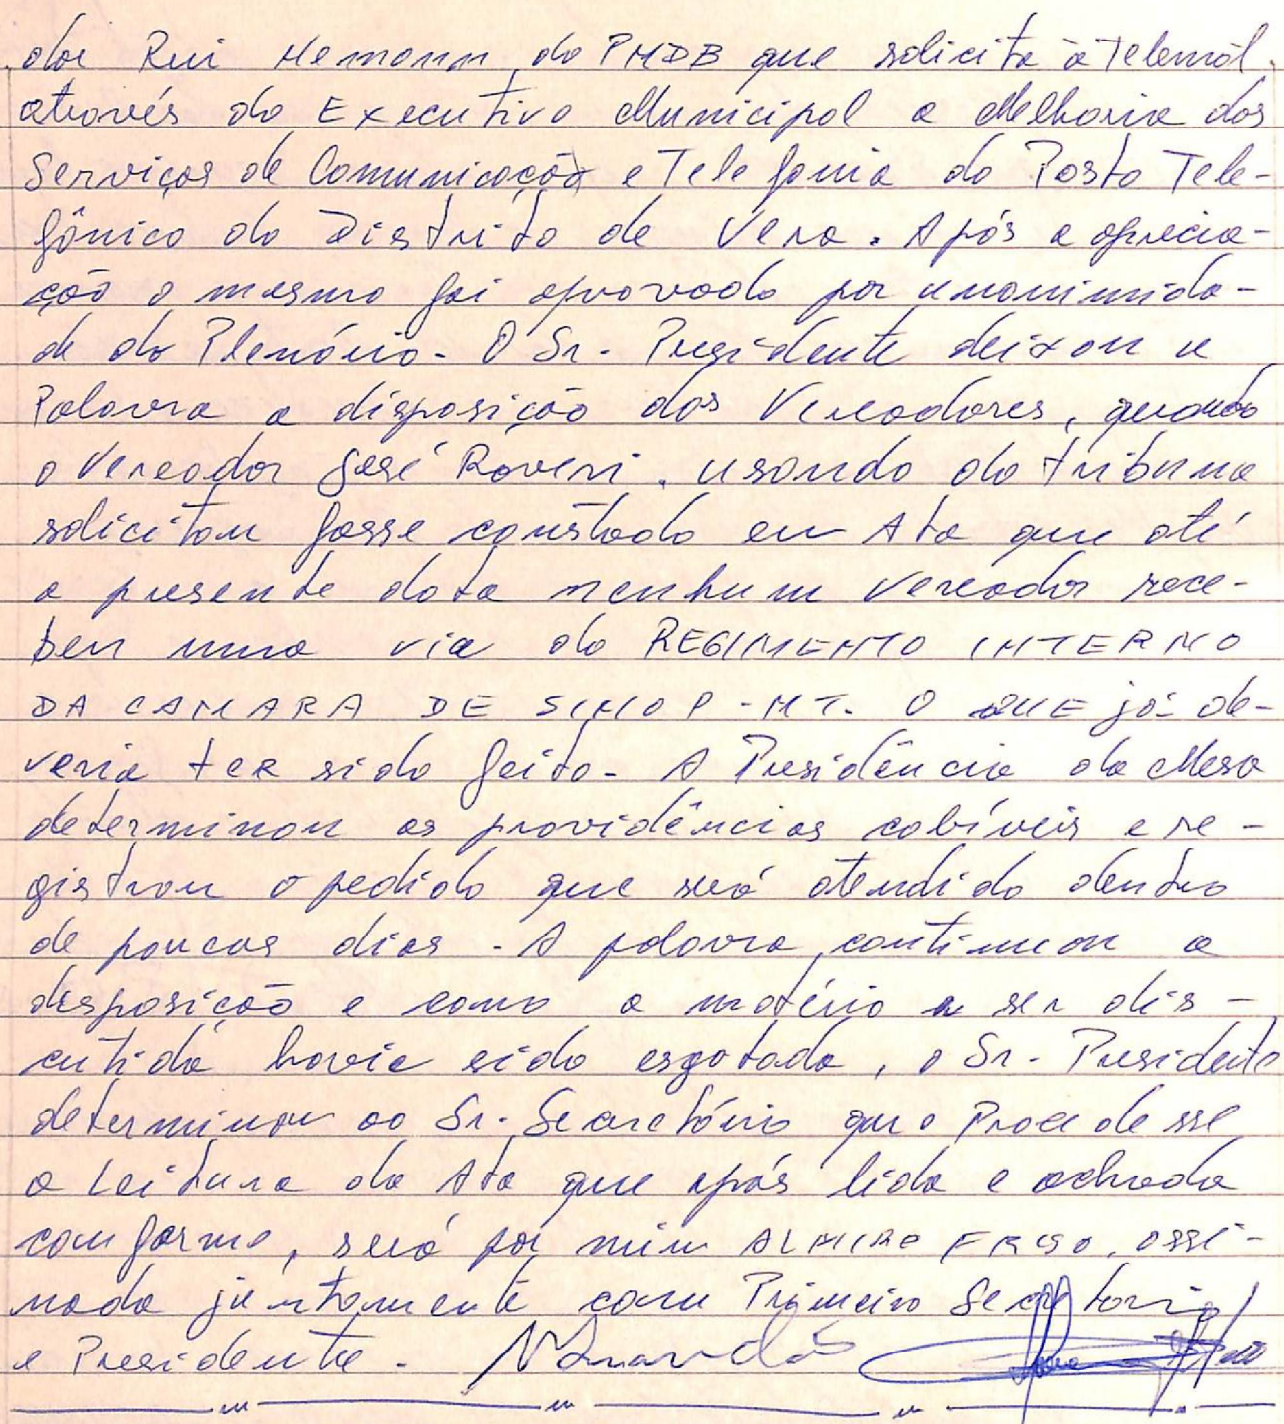 dor Rui Hemann do PMDB que solicita à Telemat,
através do Executivo Municipal a Melhoria dos
Serviços de Comunicação e Telefonia do Posto Tele-
fônico do Distrito de Vera. Após a aprecia-
ção o mesmo foi aprovado por unanimida-
de do Plenário. O Sr. Presidente deixou a
Palavra a disposição dos Vereadores, quando
o Vereador José Roveri, usando da tribuna
solicitou fosse constado em Ata que até
a presente data nenhum Vereador rece-
beu uma via do REGIMENTO INTERNO
DA CAMARA DE SINOP-MT. O QUE já de-
veria ter sido feito. A Presidência da Mesa
determinou as providências cabíveis e re-
gistrou o pedido que será atendido dentro
de poucos dias. A palavra continuou a
disposição e como a matéria a ser dis-
cutida havia sido esgotada, o Sr. Presidente
determinou ao Sr. Secretário que Procedesse
a Leitura da Ata que após lida e achada
conforme, será por mim ALMIRO FRISO, assi-
nada juntamente com Primeiro Secretario
e Presidente.